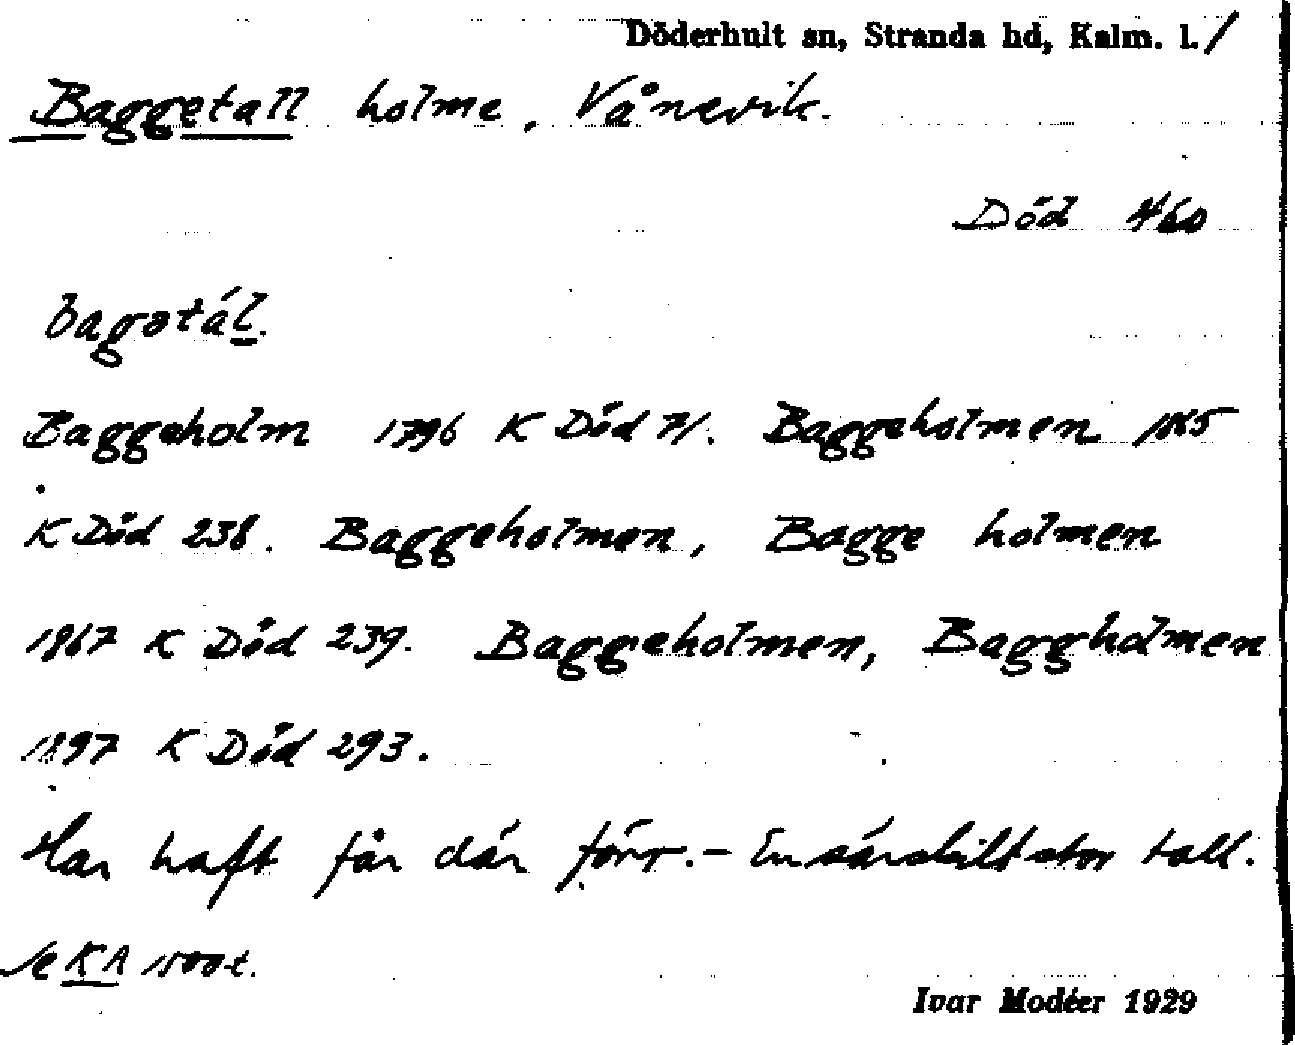 Döderhult sn, Stranda hd, Kalm. l. /
Baggetall holme, Vånevik.
Död 460
bagətál.
Baggeholm 1796 K Död 71. Baggeholmen 1865
K Död 238. Baggeholmen, Bagge holmen
1867 K Död 239. Baggeholmen, Baggholmen
1897 K Död 293.
Har haft får där förr. – En särskilt stor tall.
Se KA 1500-t.
Ivar Modéer 1929